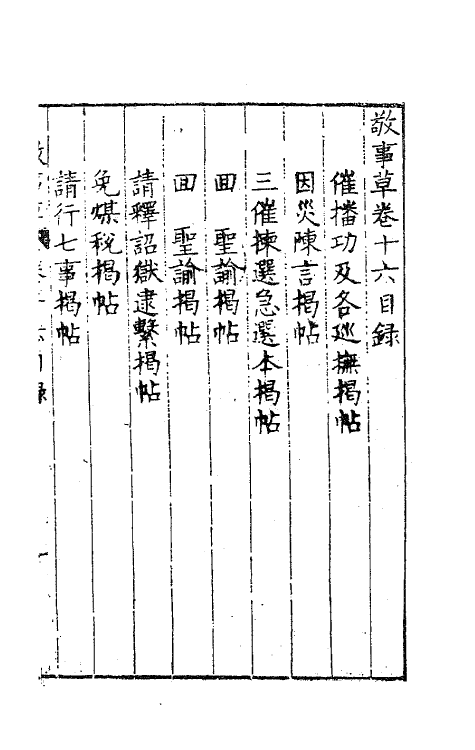 敬事草卷十六目錄
催播功及各廵撫揭帖
因災陳言揭帖
三催揀選急選本揭帖
回　聖諭揭帖
回　聖諭揭帖
請釋詔獄逮繫揭帖
免煤稅揭帖
請行七事揭帖